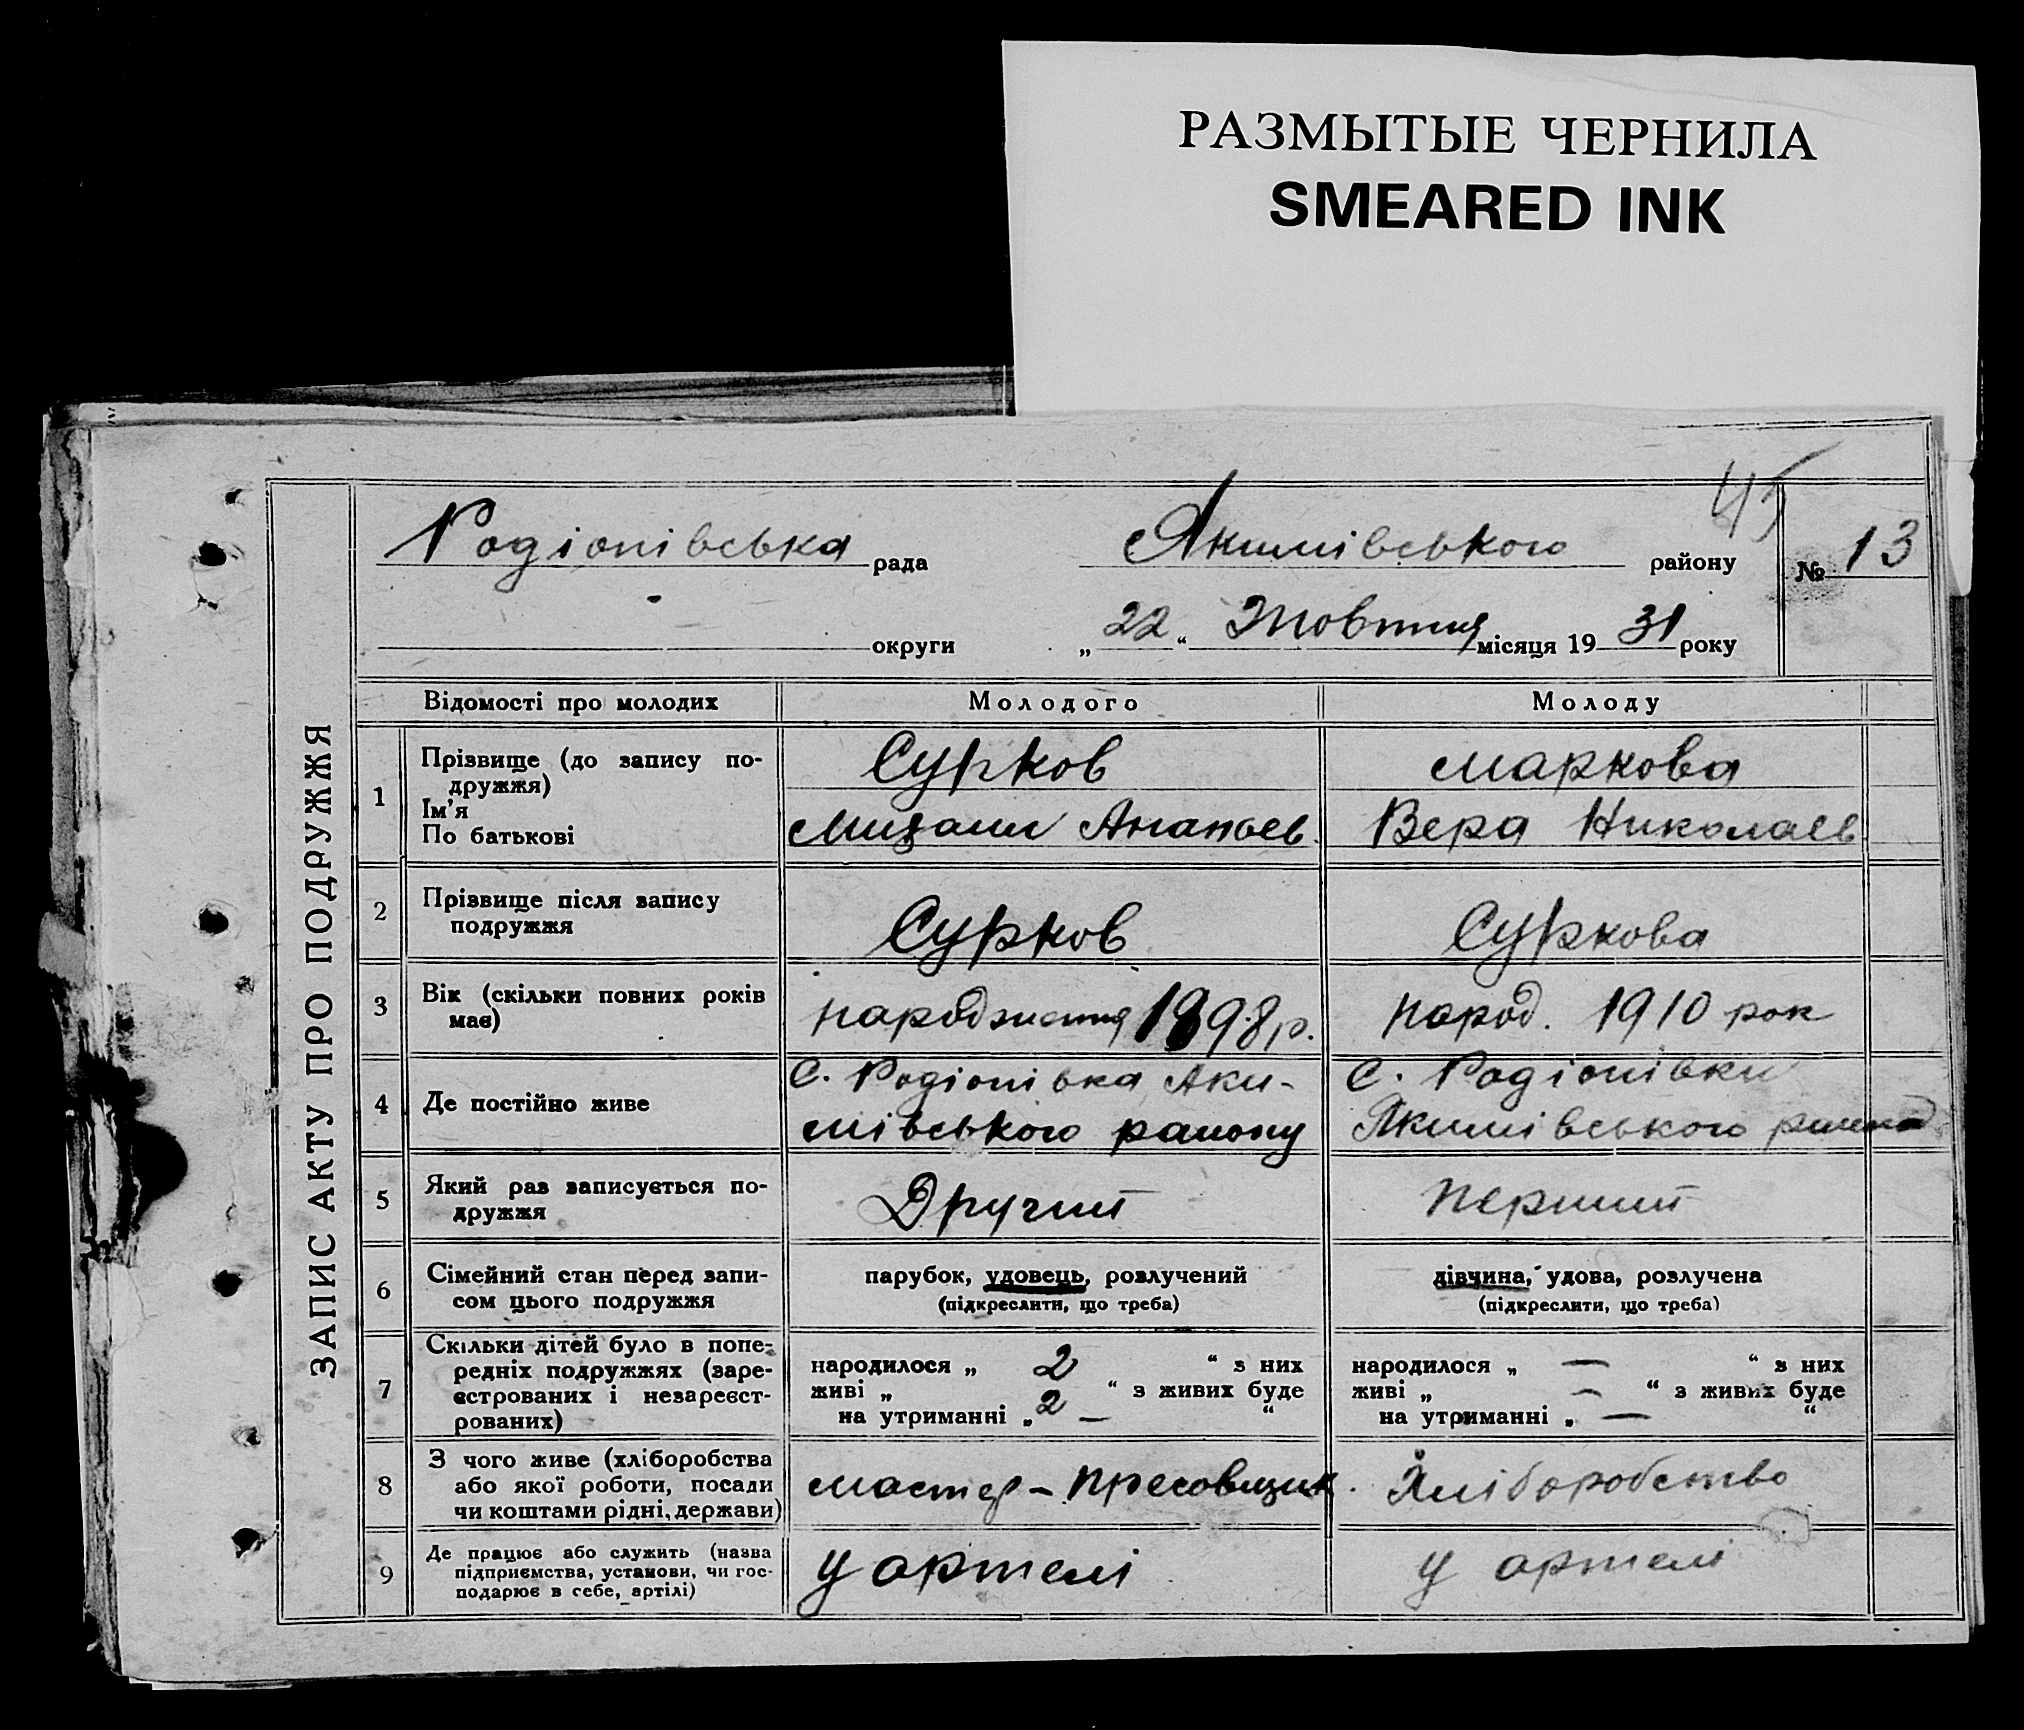 РАЗМЫТЫЕ ЧЕРНИЛА
SMEARED INK
45
Родіонівська рада Якимівського району № 13
округи „ 22 “ Жовтня місяця 19 31 року
ЗАПИС АКТУ ПРО ПОДРУЖЖЯ
Відомості про молодих Молодого Молоду
1 Прізвище (до запису по-
дружжя)
Ім'я
По батькові
Сурков Маркова
Ананьев Вера Николаев
2 Прізвище після запису
подружжя
Сурков Суркова
3 Вік (скільки повних років
має)
народження 1898 р. народ. 1910 рок
4 Де постійно живе
с. Родіонівка Аки-
мівського району
с. Родіонівки
Якимівського
5 Який раз записується по-
дружжя
Другий перший
6 Сімейний стан перед запи-
сом цього подружжя
парубок, удовець, розлучений
(підкреслити, що треба)
дівчина, удова, розлучена
(підкреслити, що треба)
7 Скільки дітей було в попе-
редніх подружжях (заре-
єстрованих і незареєст-
рованих)
народилося „ 2 “ з них
живі „ 2 “ з живих буде
на утриманні „ — “
народилося „ — “ з них
живі „ — “ з живих буде
на утриманні „ — “
8 З чого живе (хліборобства
або якої роботи, посади
чи коштами рідні, держави)
мастер – пресовщик. Хліборобство
9 Де працює або служить (назва
підприємства, установи, чи гос-
подарює в себе, артілі)
у артелі у артелі